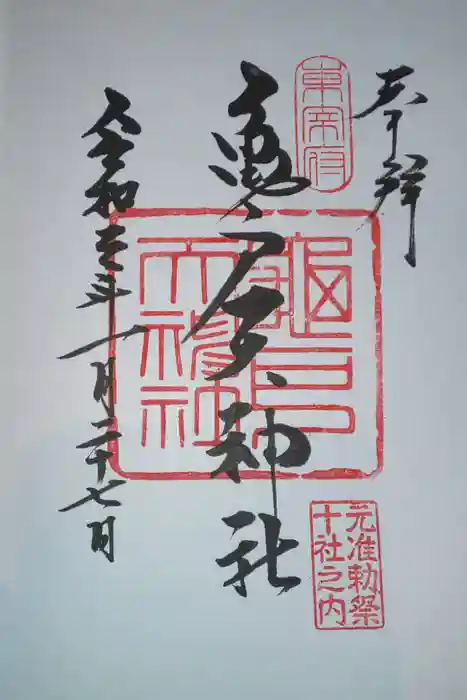 奉拝
東宰府
亀戸天神社
龜戸
天神社
元准勅祭
十社之内
令和三年一月二十七日